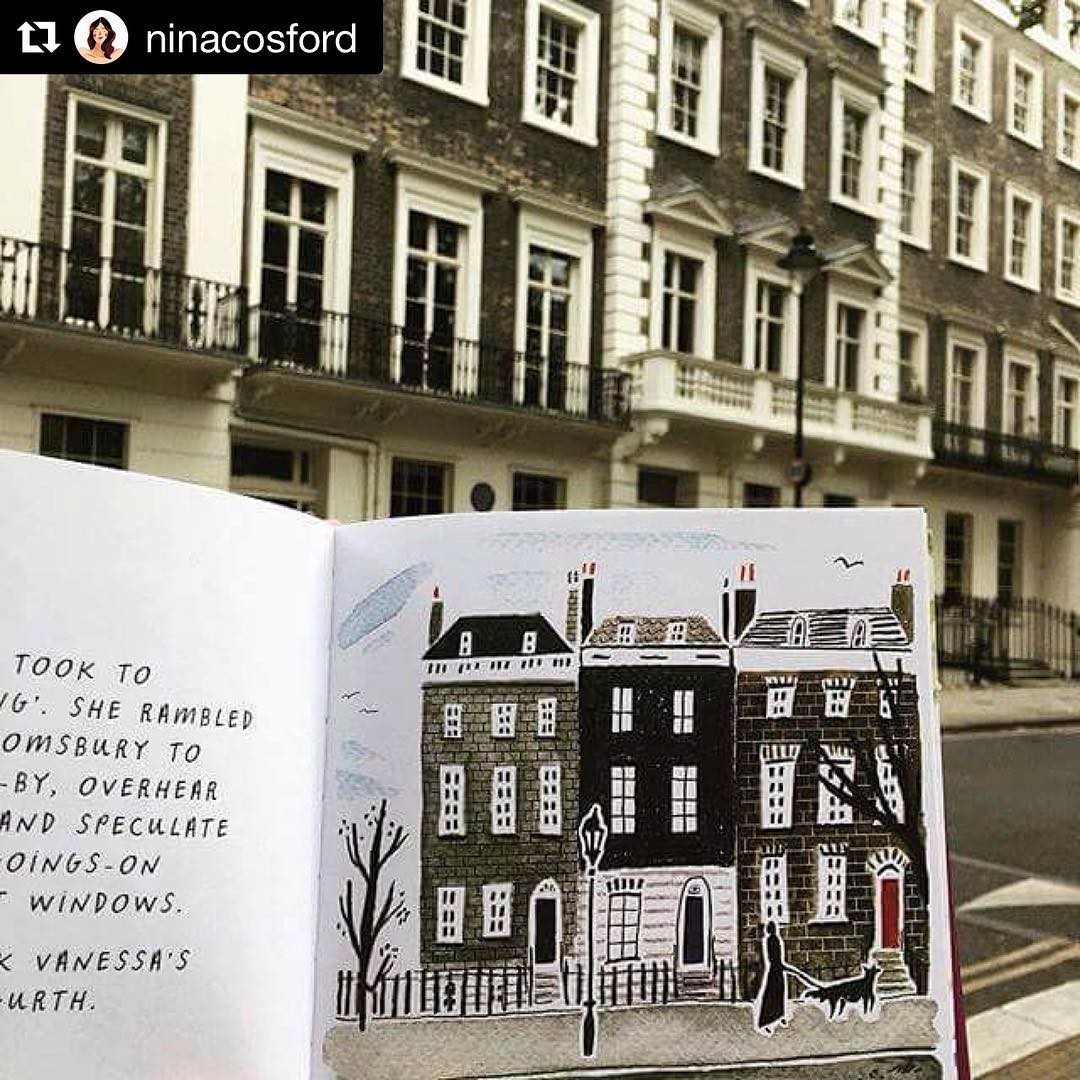 ninacosford
TOOK TO
G'. SHE RAMBLED
OOMSBURY TO
-BY, OVERHEAR
AND SPECULATE
GOINGS-ON
T WINDOWS.
K VANESSA'S
GURTH.